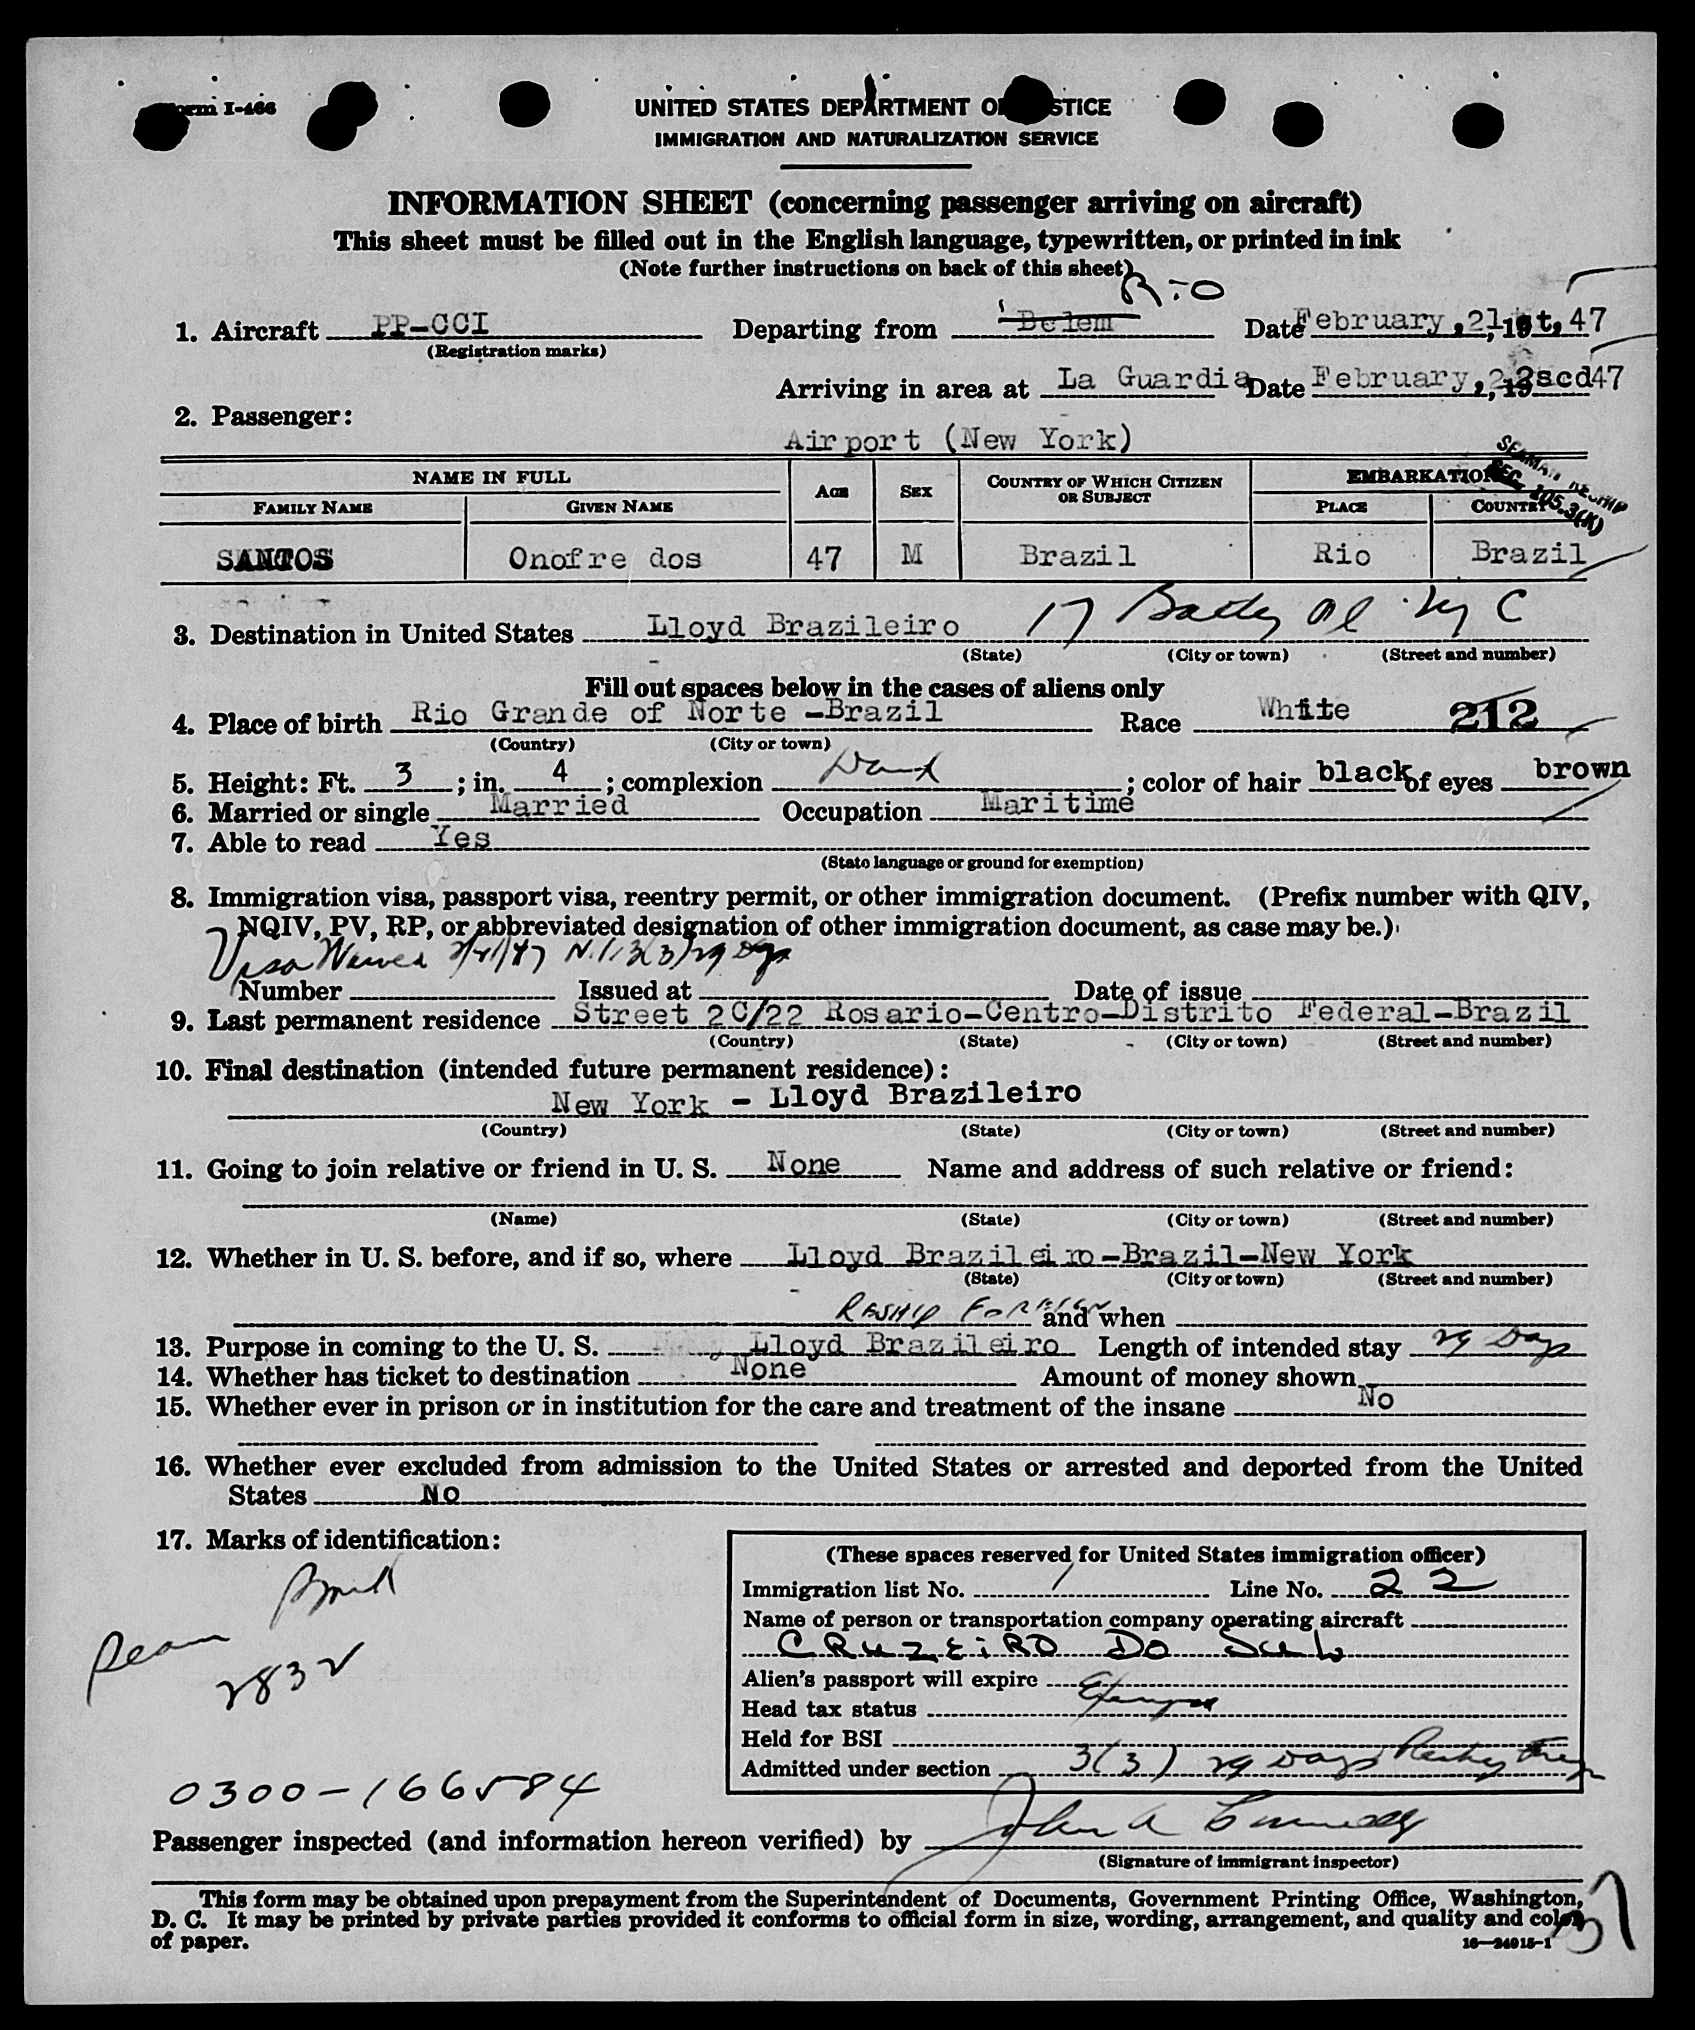 Form I-466
UNITED STATES DEPARTMENT OF JUSTICE
IMMIGRATION AND NATURALIZATION SERVICE
INFORMATION SHEET (concerning passenger arriving on aircraft)
This sheet must be filled out in the English language, typewritten, or printed in ink
(Note further instructions on back of this sheet)
Rio
1. Aircraft PP-CCI Departing from Belem Date February, 21st, 1947
(Registration marks)
Arriving in area at La Guardia Date February, 22scd 1947
2. Passenger:
Airport (New York)
SEAMAN RESHIP
SEC. 105.3(K)
NAME IN FULL AGE SEX COUNTRY OF WHICH CITIZEN OR SUBJECT EMBARKATION
FAMILY NAME GIVEN NAME PLACE COUNTRY
SANTOS Onofre dos 47 M Brazil Rio Brazil
3. Destination in United States Lloyd Brazileiro 17 Battery Pl NYC
(State) (City or town) (Street and number)
Fill out spaces below in the cases of aliens only
4. Place of birth Rio Grande of Norte -Brazil Race White 212
(Country) (City or town)
5. Height: Ft. 3 ; in. 4 ; complexion Dark ; color of hair black of eyes brown
6. Married or single Married Occupation Maritime
7. Able to read Yes
(State language or ground for exemption)
8. Immigration visa, passport visa, reentry permit, or other immigration document. (Prefix number with QIV,
NQIV, PV, RP, or abbreviated designation of other immigration document, as case may be.)
Visa Waived 2/21/47 3(3) 29 Days
Number Issued at Date of issue
9. Last permanent residence Street 2C/22 Rosario-Centro-Distrito Federal-Brazil
(Country) (State) (City or town) (Street and number)
10. Final destination (intended future permanent residence):
New York - Lloyd Brazileiro
(Country) (State) (City or town) (Street and number)
11. Going to join relative or friend in U. S. None Name and address of such relative or friend:
(Name) (State) (City or town) (Street and number)
12. Whether in U. S. before, and if so, where Lloyd Brazileiro-Brazil-New York
(State) (City or town) (Street and number)
RESHIP FOREIGN and when
13. Purpose in coming to the U. S. Lloyd Brazileiro Length of intended stay 29 Days
14. Whether has ticket to destination None Amount of money shown
15. Whether ever in prison or in institution for the care and treatment of the insane No
16. Whether ever excluded from admission to the United States or arrested and deported from the United
States No
17. Marks of identification:
2832
0300-166584
(These spaces reserved for United States immigration officer)
Immigration list No. 1 Line No. 22
Name of person or transportation company operating aircraft
CRUZEIRO DO SUL
Alien's passport will expire
Head tax status Exempt
Held for BSI
Admitted under section 3(3) 29 Days
Passenger inspected (and information hereon verified) by John A
(Signature of immigrant inspector)
This form may be obtained upon prepayment from the Superintendent of Documents, Government Printing Office, Washington,
D. C. It may be printed by private parties provided it conforms to official form in size, wording, arrangement, and quality and color
of paper.
16-24915-1